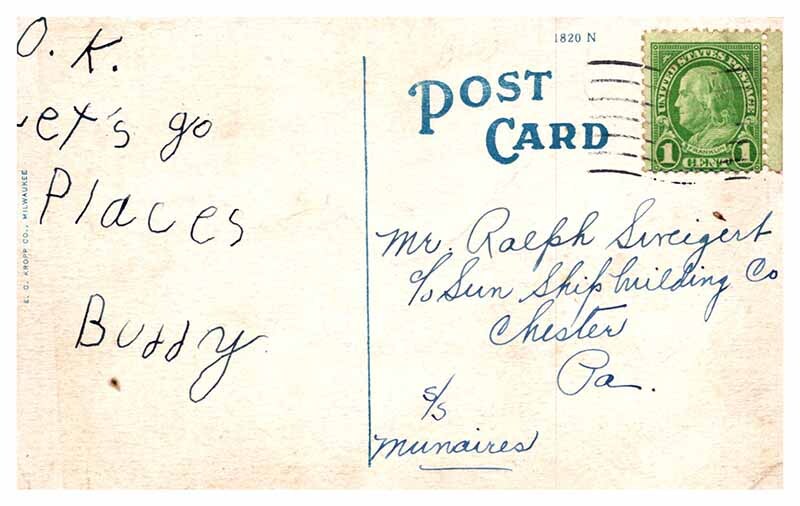 O. K.
Let's go
Places
Buddy
E. C. KROPP CO., MILWAUKEE
1820 N
POST
CARD
UNITED STATES POSTAGE
FRANKLIN
1 CENT 1
Mr. Ralph Sweigert
c/o Sun Shipbuilding Co
Chester
Pa.
s/s
Munaires